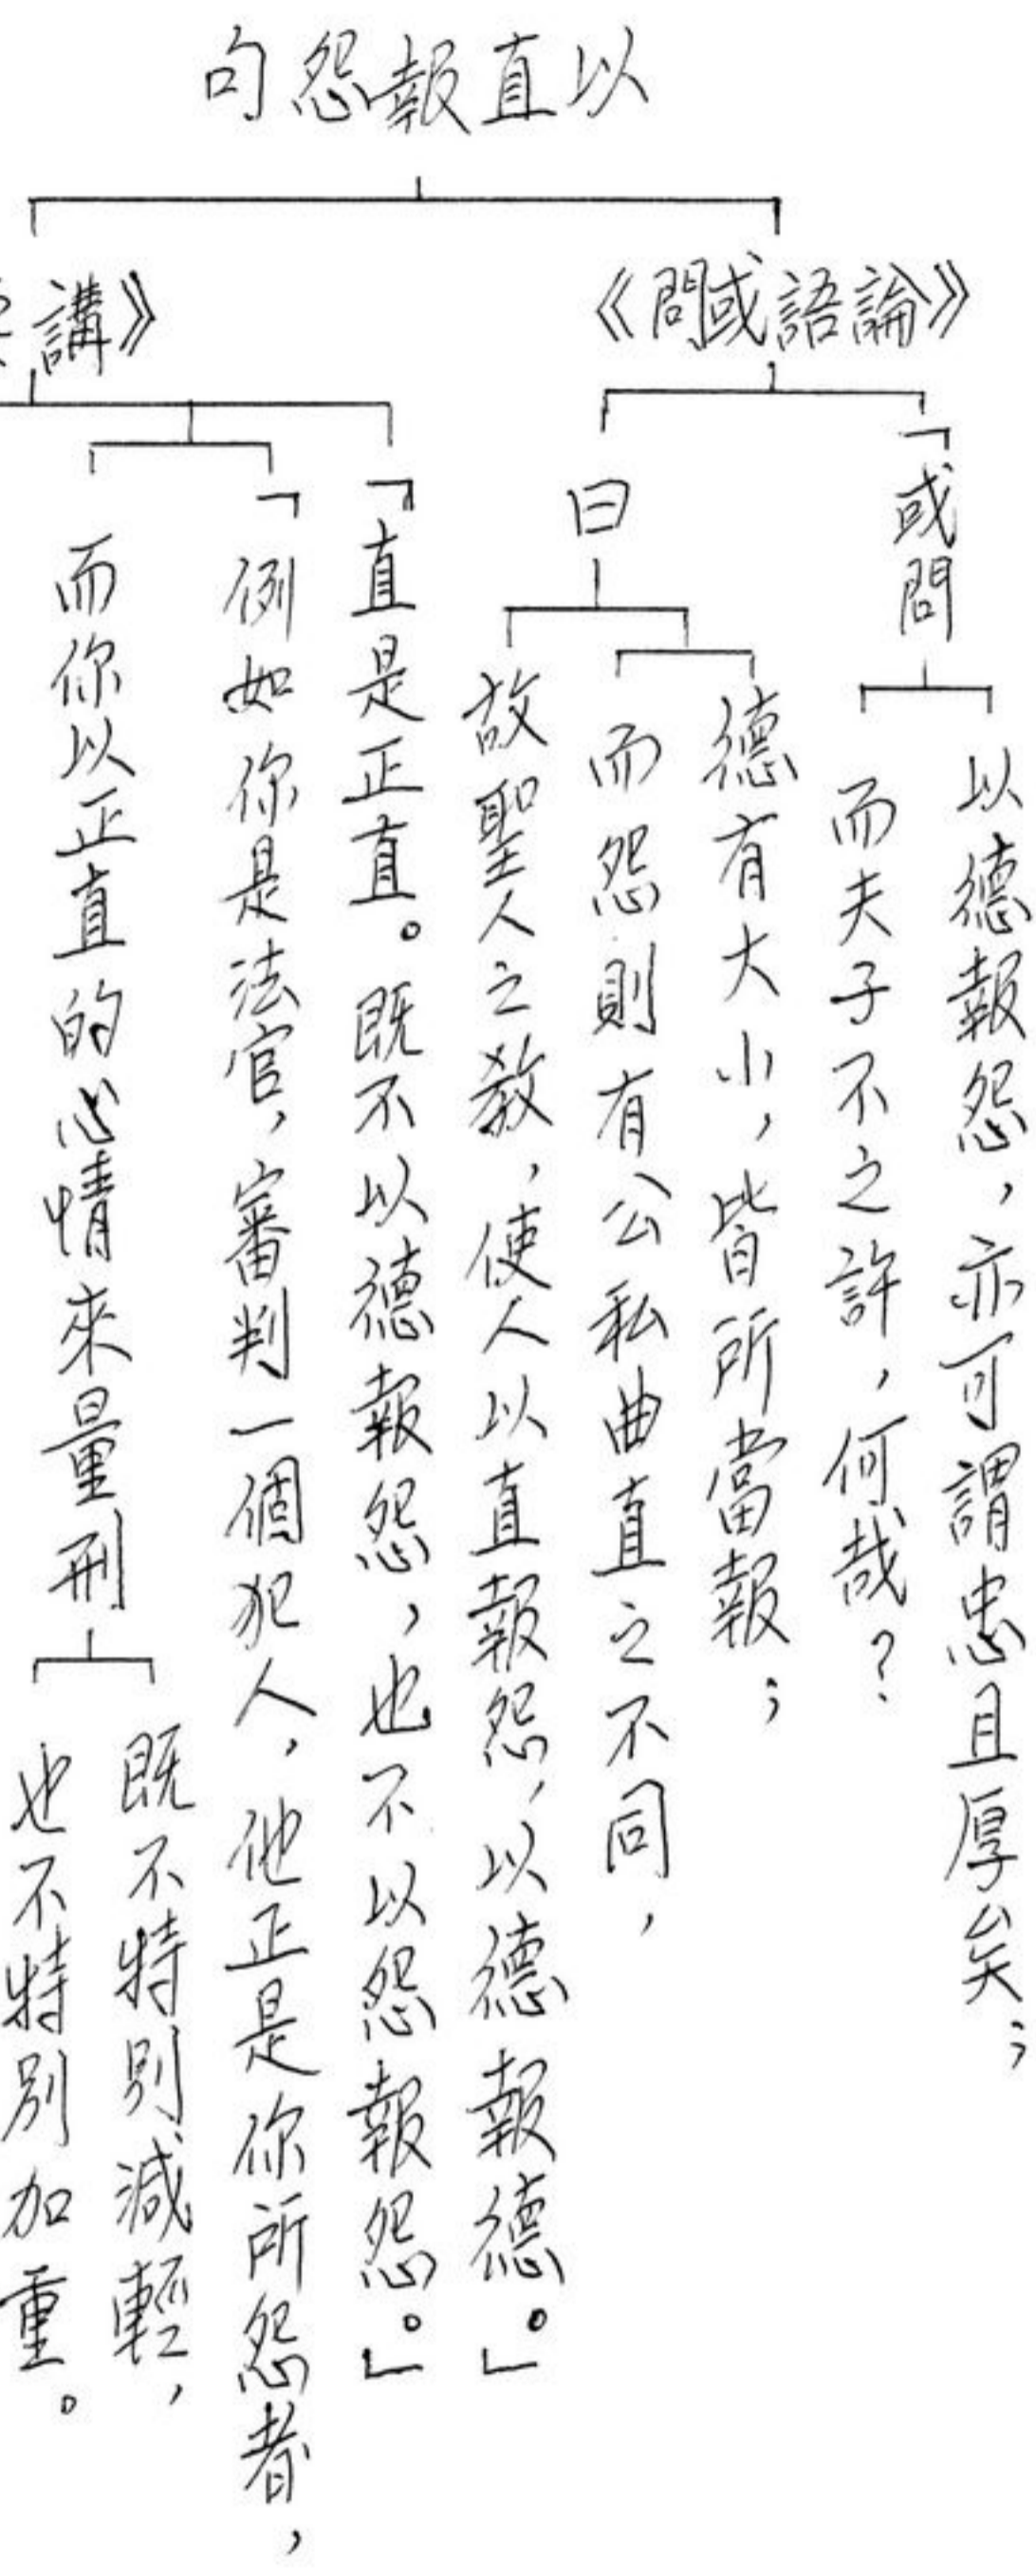 以直報怨句
《論語或問》
「或問
以德報怨，亦可謂忠且厚矣；
而夫子不之許，何哉？
曰
德有大小，皆所當報；
而怨則有公私曲直之不同，
故聖人之教，使人以直報怨，以德報德。」
《講
「直是正直。既不以德報怨，也不以怨報怨。」
「例如你是法官，審判一個犯人，他正是你所怨者，
而你以正直的心情來量刑
既不特別減輕，
也不特別加重。